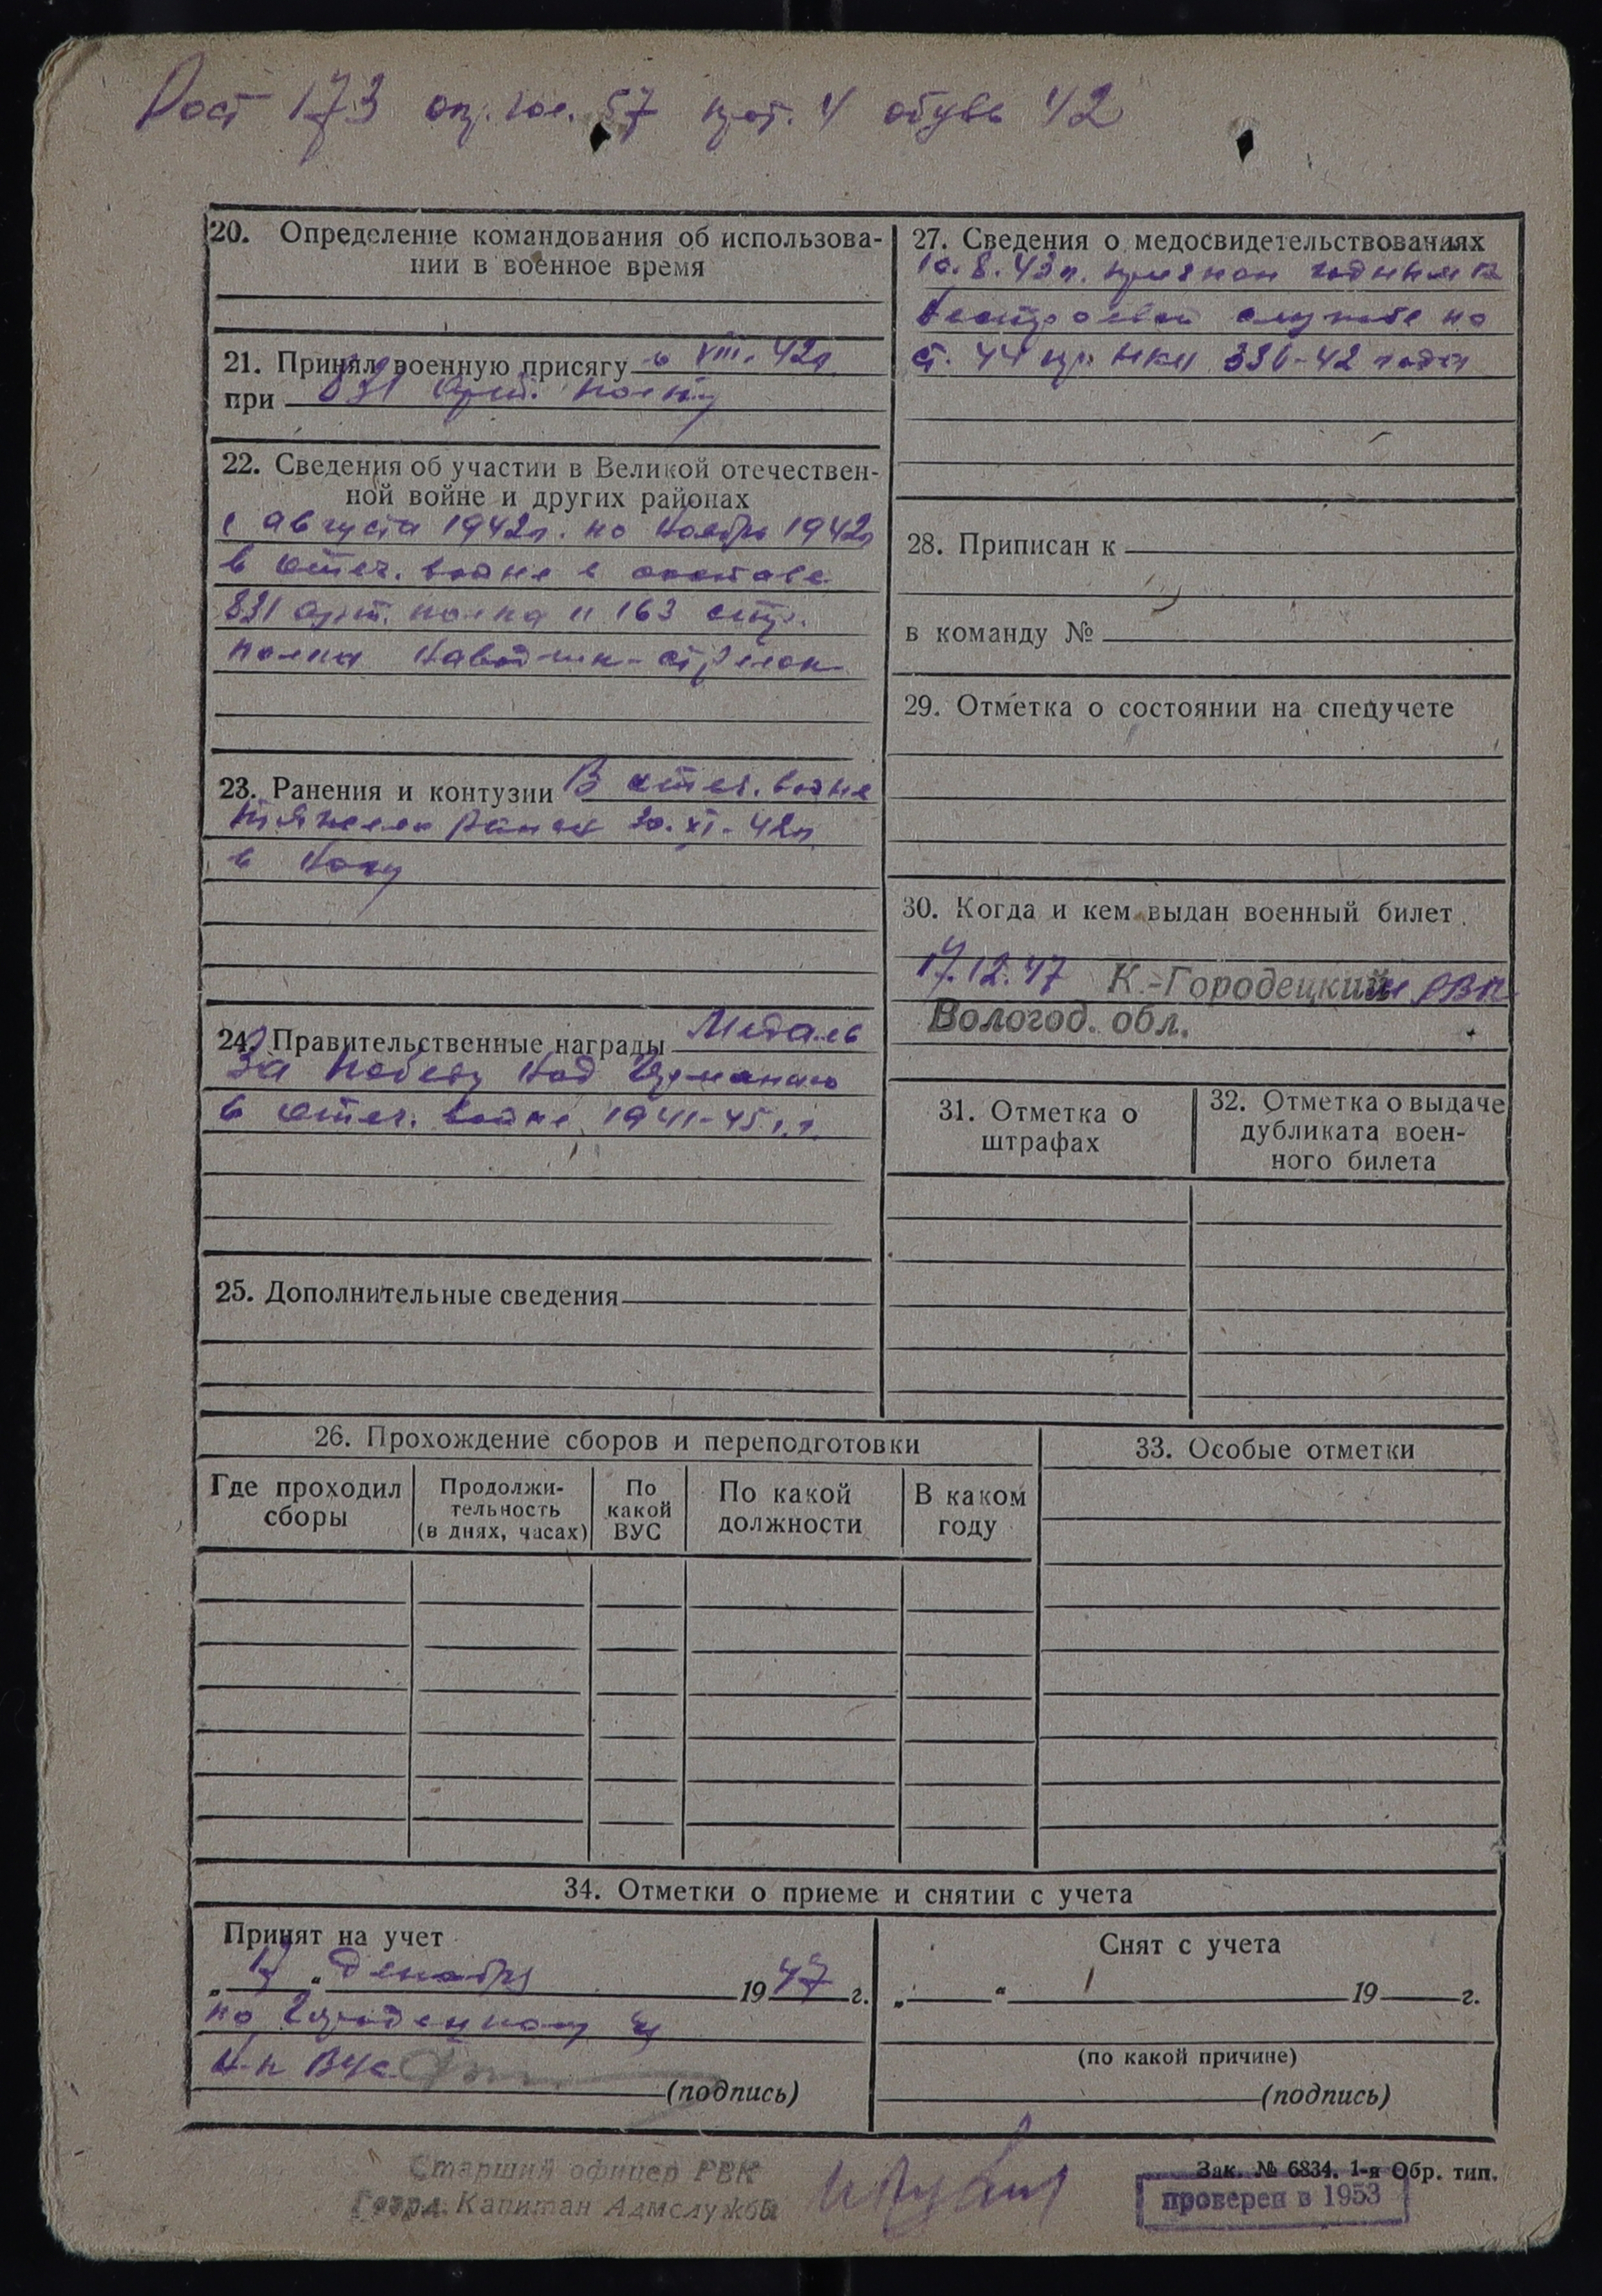 Рост 173 ог. гол. 57 прот. 4 обувь 42
20. Определение командования об использова-
нии в военное время
21. Принял военную присягу в VIII. 42г
при 831 арт. полку
22. Сведения об участии в Великой отечествен-
ной войне и других районах
с августа 1942г. по ноябрь 1942г
в отеч. войне в составе
831 арт. полка и 163 стр.
полка наводчик-стрелок
23. Ранения и контузии В отеч. войне
тяжело ранен 30.XI-42г
в ногу
24. Правительственные награды Медаль
За победу над Германию
в отеч. войне 1941-45 г.г.
25. Дополнительные сведения
27. Сведения о медосвидетельствованиях
10.8.43г. признан годным к
нестроевой службе по
ст. 44 пр. НКО 336-42 года
28. Приписан к
в команду №
29. Отметка о состоянии на спецучете
30. Когда и кем выдан военный билет
17.12.47 К.-Городецким РВК
Вологод. обл.
31. Отметка о
штрафах
32. Отметка о выдаче
дубликата воен-
ного билета
26. Прохождение сборов и переподготовки
Где проходил
сборы
Продолжи-
тельность
(в днях, часах)
По
какой
ВУС
По какой
должности
В каком
году
33. Особые отметки
34. Отметки о приеме и снятии с учета
Принят на учет
„17“ декабря 1947 г.
по Городецкому
(подпись)
Снят с учета
„ “ 19 г.
(по какой причине)
(подпись)
Старший офицер РВК
Капитан Адмслужбы
Зак. № 6834. 1-я Обр. тип.
проверен в 1953